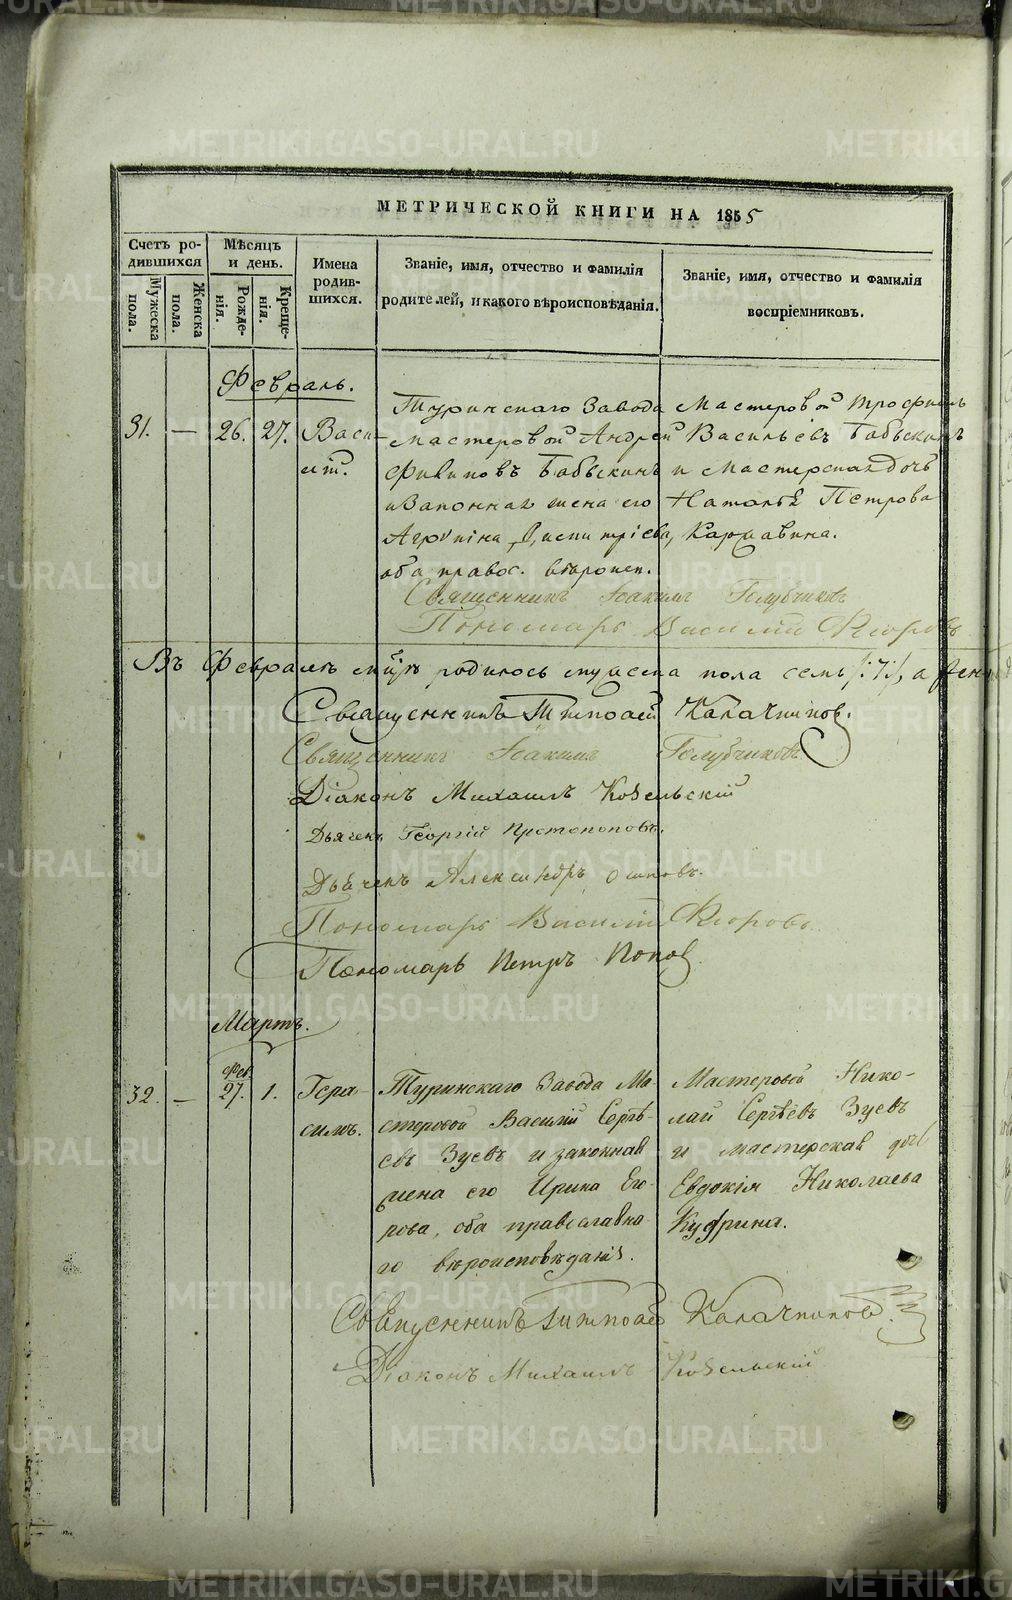 МЕТРИЧЕСКОЙ КНИГИ НА 1855
Счетъ ро-
дившихся
Мѣсяцъ
и день.
Имена
родив-
шихся.
Званіе, имя, отчество и фамилія
родителей, и какого вѣроисповѣданія.
Званіе, имя, отчество и фамилія
воспріемниковъ.
Мужеска
пола.
Женска
пола.
Рожде-
нія.
Креще-
нія.
Февраль.
31. — 26. 27. Васи-
лій.
Туринскаго Завода
мастеровой Андрей
Филиповъ Бабыкинъ
и Законная жена его
Агрипина Димитріева,
оба правос. вѣроисп.
Мастеровой Трофимъ
Васильевъ Бабыкинъ
и Мастерская дочь
Наталья Петрова
Кармавина.
Священникъ Іоакимъ Голубчиковъ
Пономарь Василій Флоровъ
Въ Февралѣ мцѣ родилось мужеска пола семь /:7:/, а жен
Священникъ Тимофей Калачниковъ.
Священникъ Іоакимъ Голубчиковъ
Діаконъ Михаилъ Козельскій
Дьячекъ Георгій Протопоповъ.
Дьячекъ Александръ Осиповъ.
Пономарь Василій Флоровъ
Пономарь Петръ Попов
Мартъ.
32. — Фев. 27. 1. Гера-
симъ.
Туринскаго Завода Ма-
стеровой Василій Сергѣ-
евъ Зуевъ и законная
жена его Ирина Его-
рова, оба православна-
го вѣроисповѣданія.
Мастеровой Нико-
лай Сергѣевъ Зуевъ
и мастерская дочь
Евдокія Николаева
Кудрина.
Священникъ Тимофей Калачниковъ
Діаконъ Михаилъ Козельскій
METRIKI.GASO-URAL.RU